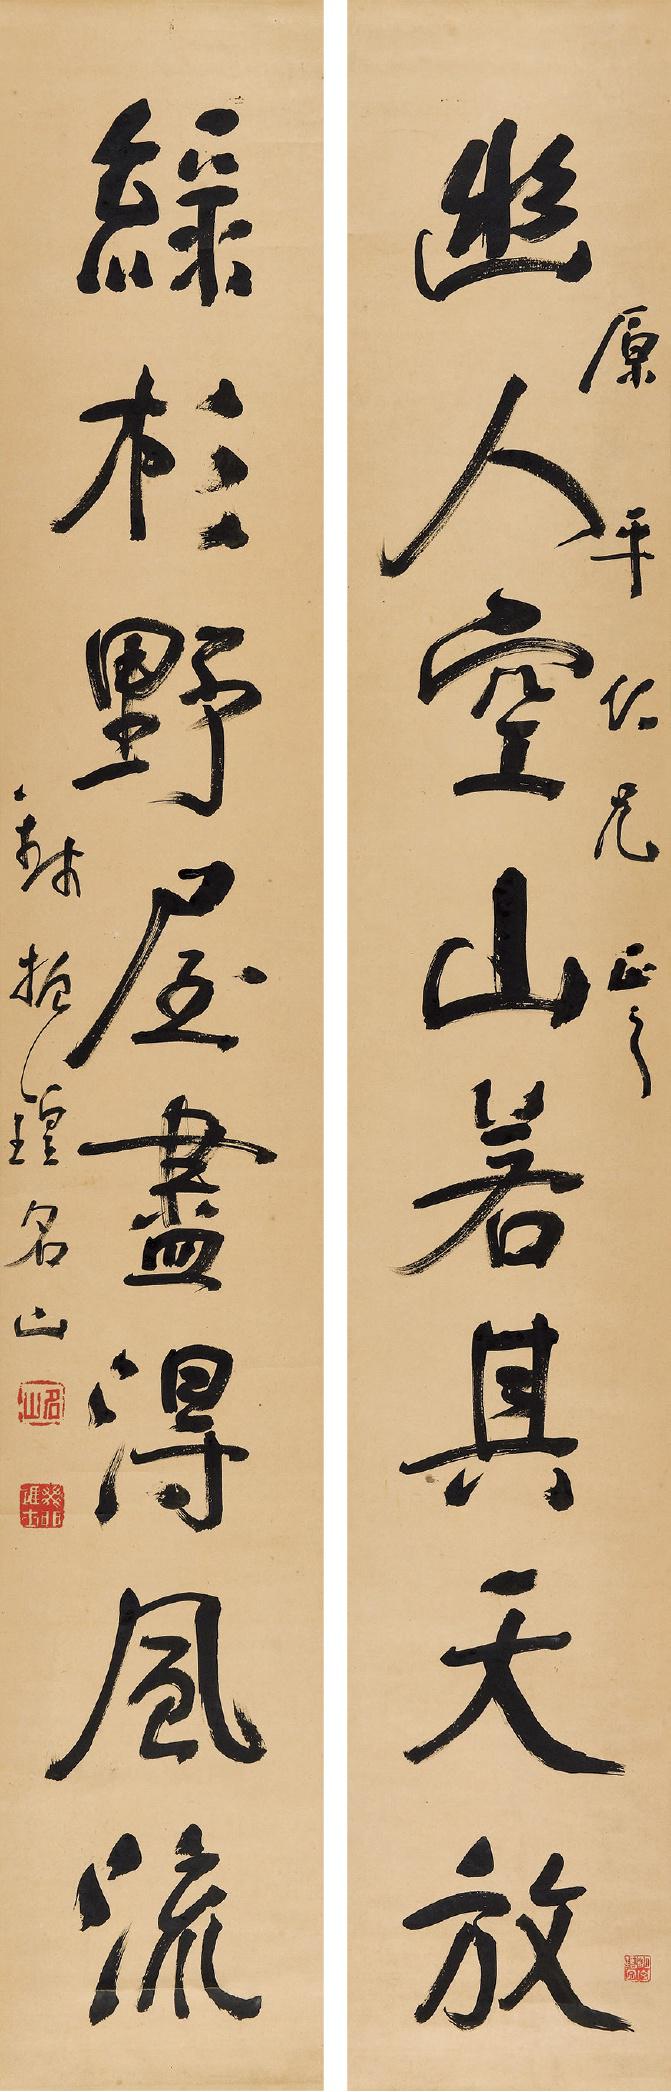 幽人空山若其天放
原平仁兄正之
綠杉野屋盡得風流
錢振鍠名山
名山